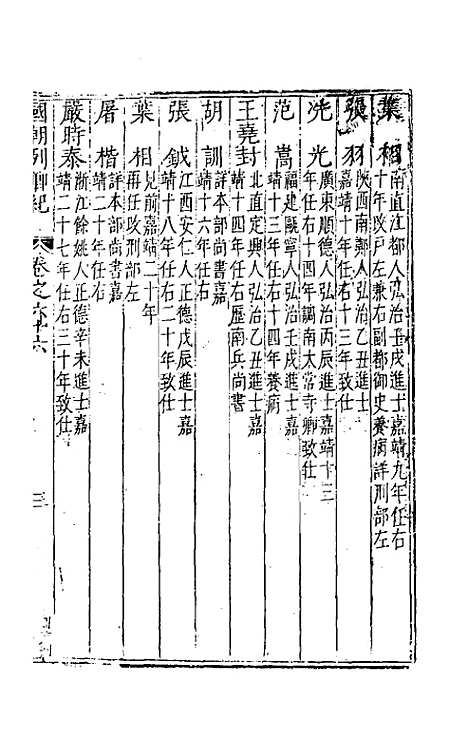 葉相南直江都人弘治壬戌進士嘉靖九年任右
十年改戶左兼右副都御史養病詳刑部左
張羽陝西南鄭人弘治乙丑進士
嘉靖十年任右十三年致仕
冼光廣東順德人弘治丙辰進士嘉靖十三
年任右十四年調南太常寺卿致仕
范嵩福建甌寧人弘治壬戌進士嘉
靖十三年任右十四年養病
王堯封北直定興人弘治乙丑進士嘉
靖十四年任右歷南兵尚書
胡訓詳本部尚書嘉
靖十六年任右
張鉞江西安仁人正德戊辰進士嘉
靖十八年任右二十年致仕
葉相見前嘉靖二十年
再任改刑部左
屠楷詳本部尚書嘉
靖二十年任右
嚴時泰浙江餘姚人正德辛未進士嘉
靖二十七年任右三十年致仕
國朝列卿紀 卷之六十六 三